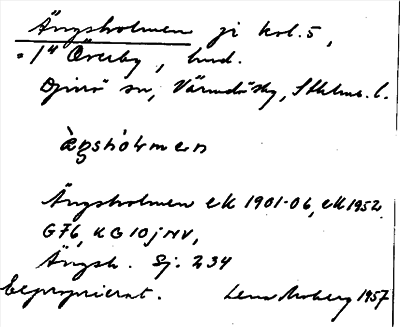 Ängsholmen ji kol. 5,
1" Överby, hmd.
Djurö sn, Värmdö skg, Sthlms l.
ägshólmen
Ängsholmen ek 1901-06, ek 1952
G 76, KG 10j NV,
Ängsh. Sj. 234
Eeproprierat. Lena Moberg 1957